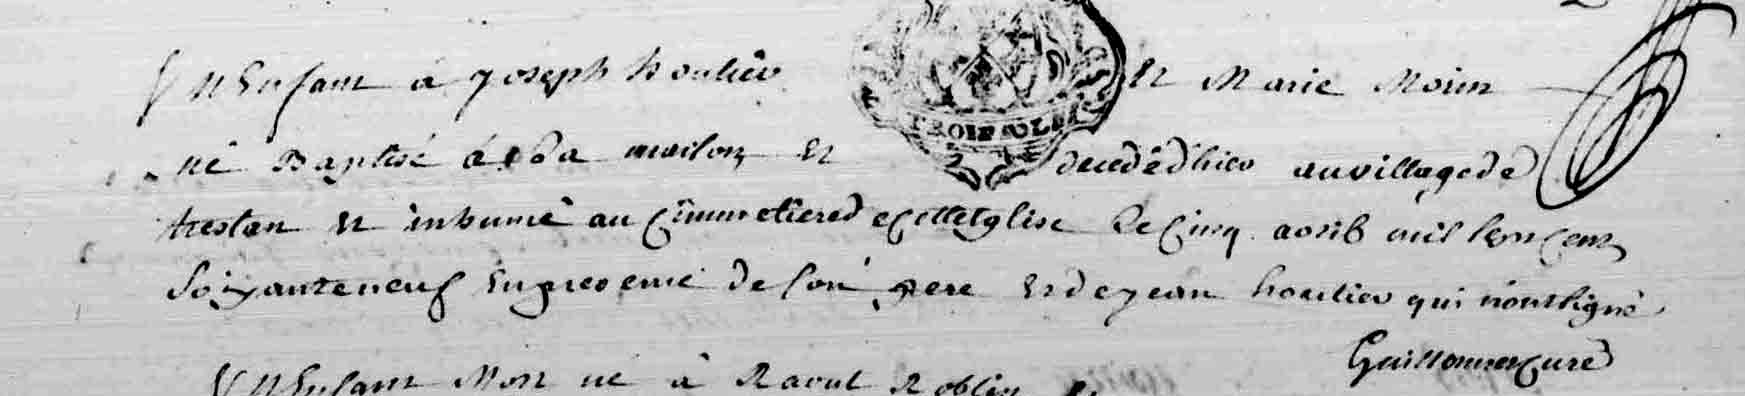 Un Enfant à Joseph houlier et Marie Morin
né Baptisé à la maison et decedé d'hier au village de
trestan et inhumé au cimmetiere de cette Eglise le cinq avril mil sept cent
Soixante neuf en presence de son pere et de jean houlier qui n'ont signé
Guillonnet curé
TROIS SOLS
Un Enfant Mort né à Raoul Roblin